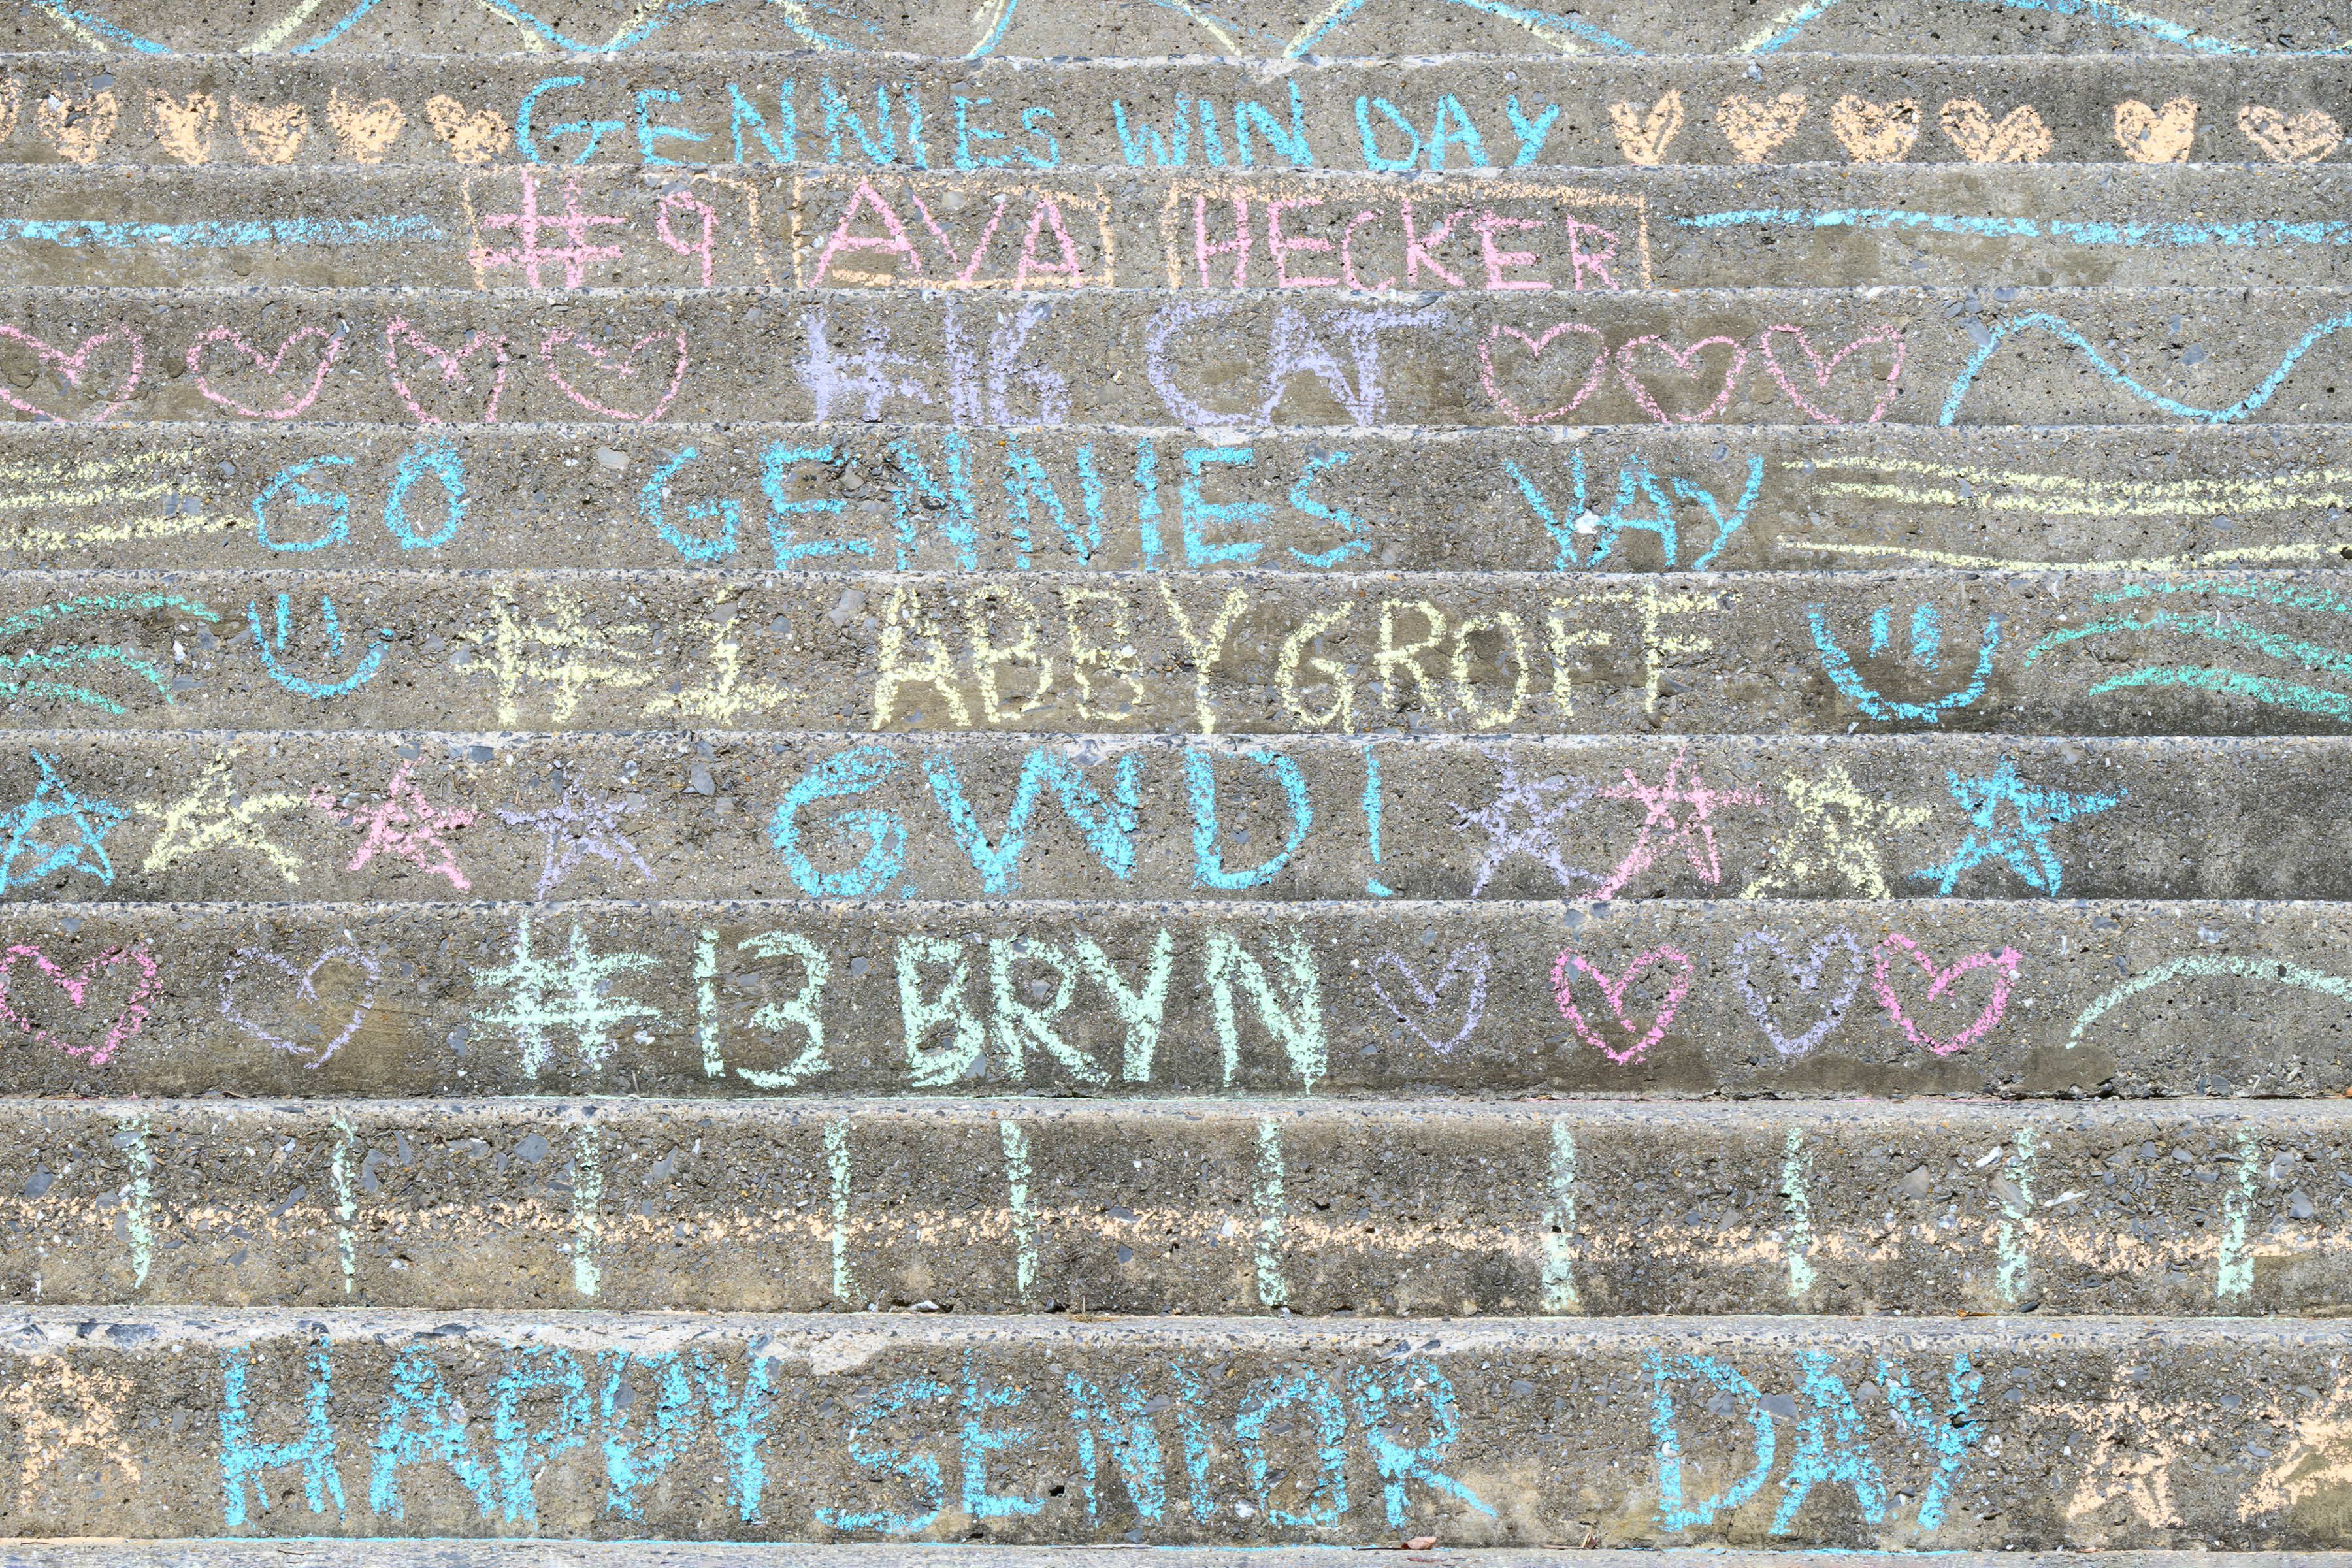 GENNIES WIN DAY
#9 AVA HECKER
#16 CAT
GO GENNIES YAY
#1 ABBY GROFF
GWD!
#13 BRYN
HAPPY SENIOR DAY